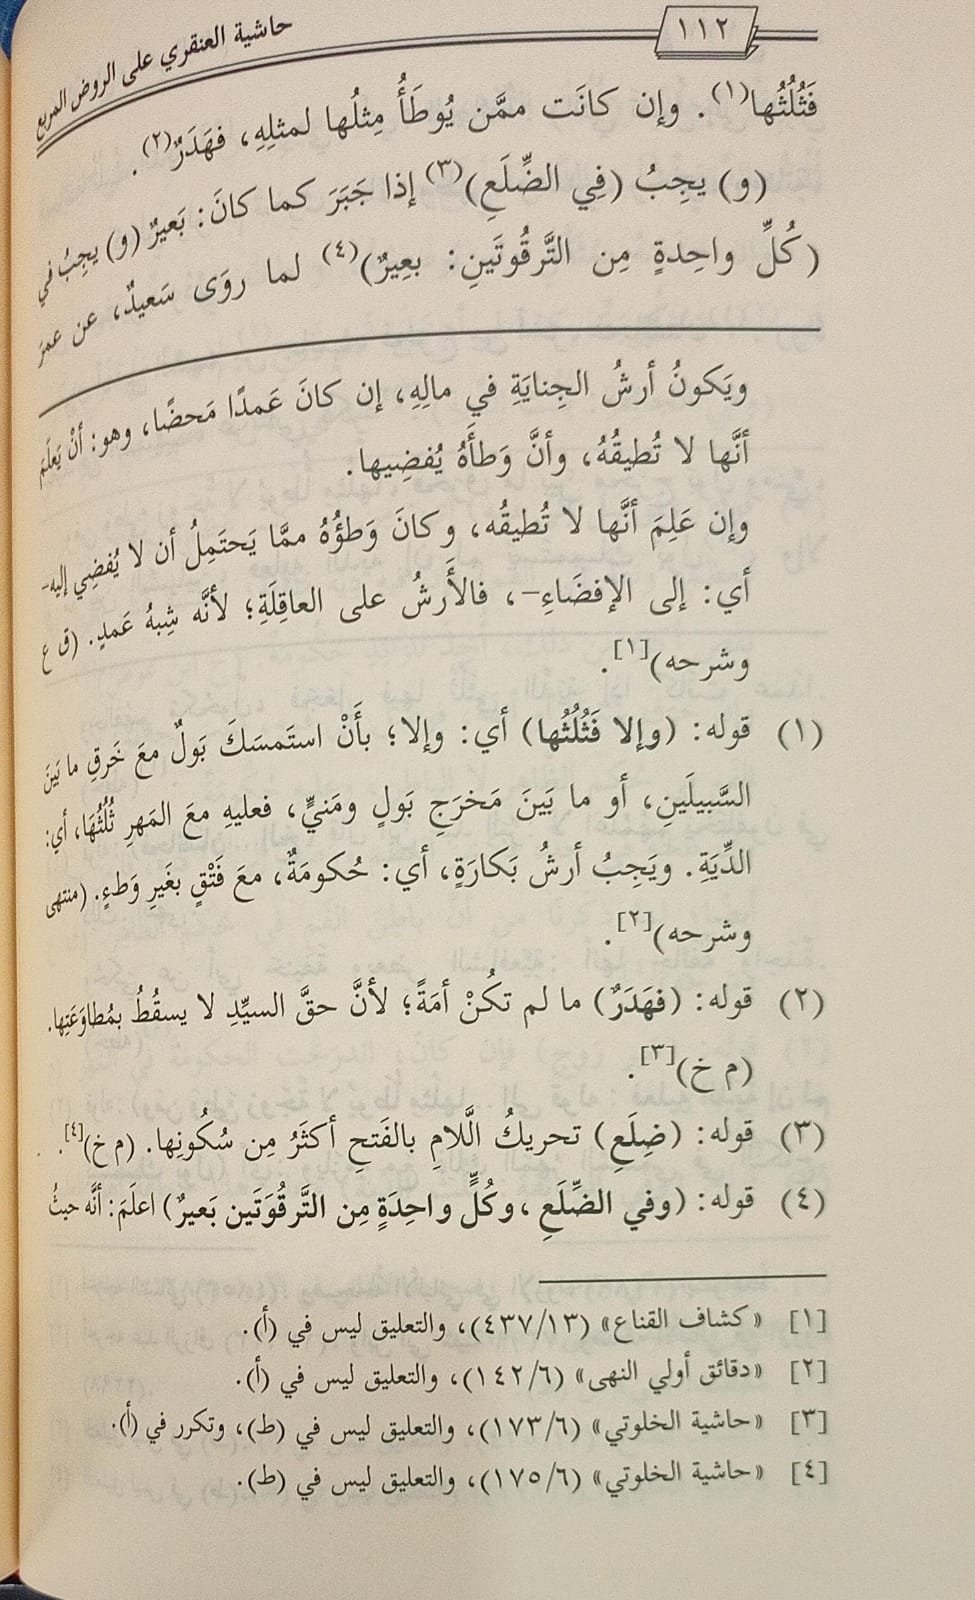 ١١٢
حاشية العنقري على الروض المربع
فَثُلُثُها(١). وإن كانَت ممَّن يُوطَأُ مِثلُها لمثلِهِ، فهَدَرٌ(٢).
(و) يجِبُ (فِي الضِّلَعِ)(٣) إذا جَبَرَ كما كانَ: بَعيرٌ (و) يجِبُ في
(كُلِّ واحِدةٍ مِن التَّرقُوتَينِ: بعِيرٌ)(٤) لما روَى سَعيدٌ، عن عمرَ
ويَكونُ أرشُ الجِنايَةِ في مالِهِ، إن كانَ عَمدًا مَحضًا، وهو: أنْ يَعلَمَ
أنَّها لا تُطيقُهُ، وأنَّ وَطأَهُ يُفضِيها.
وإن عَلِمَ أنَّها لا تُطيقُه، وكانَ وَطؤُهُ ممَّا يَحتَمِلُ أن لا يُفضِي إليه-
أي: إلى الإفضَاءِ-، فالأَرشُ على العاقِلَةِ؛ لأنَّه شِبهُ عَمدٍ. (ق ع
وشرحه)[١].
(١) قوله: (وإلا فَثُلُثُها) أي: وإلا؛ بأَنْ استَمسَكَ بَولٌ معَ خَرقِ ما بَينَ
السَّبيلَينِ، أو ما بَينَ مَخرَجِ بَولٍ ومَنيٍّ، فعليهِ معَ المَهرِ ثُلُثُهَا، أي:
الدِّيَةِ. ويَجِبُ أرشُ بَكارَةٍ، أي: حُكومَةٌ، معَ فَتْقٍ بغَيرِ وَطءٍ. (منتهى
وشرحه)[٢].
(٢) قوله: (فهَدَرٌ) ما لم تكُنْ أمَةً؛ لأنَّ حقَّ السيِّدِ لا يسقُطُ بمُطاوَعَتِها.
(م خ)[٣].
(٣) قوله: (ضِلَعِ) تحريكُ الَّلامِ بالفَتحِ أكثَرُ مِن سُكُونِها. (م خ)[٤].
(٤) قوله: (وفي الضِّلَعِ، وكُلٍّ واحِدَةٍ مِن التَّرقُوَتَين بَعيرٌ) اعلَمَ: أنَّه حيثُ
[١] «كشاف القناع» (٤٣٧/١٣)، والتعليق ليس في (أ).
[٢] «دقائق أولي النهى» (١٤٢/٦)، والتعليق ليس في (أ).
[٣] «حاشية الخلوتي» (١٧٣/٦)، والتعليق ليس في (ط)، وتكرر في (أ).
[٤] «حاشية الخلوتي» (١٧٥/٦)، والتعليق ليس في (ط).